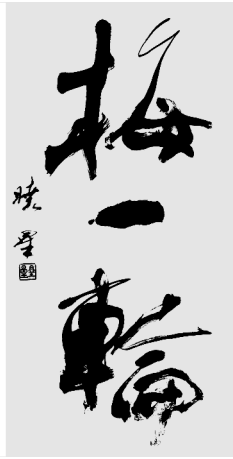 梅一輪
暁星